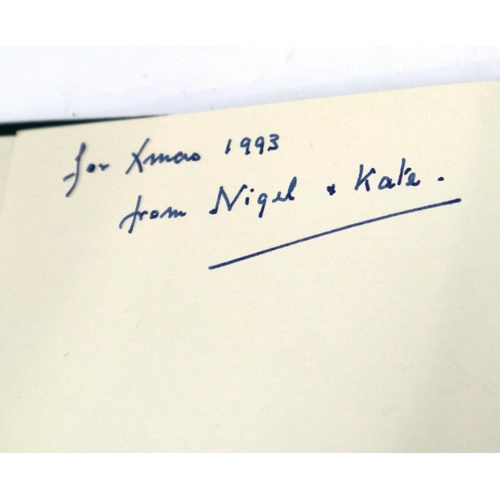 for Xmas 1993
from Nigel + Kate.